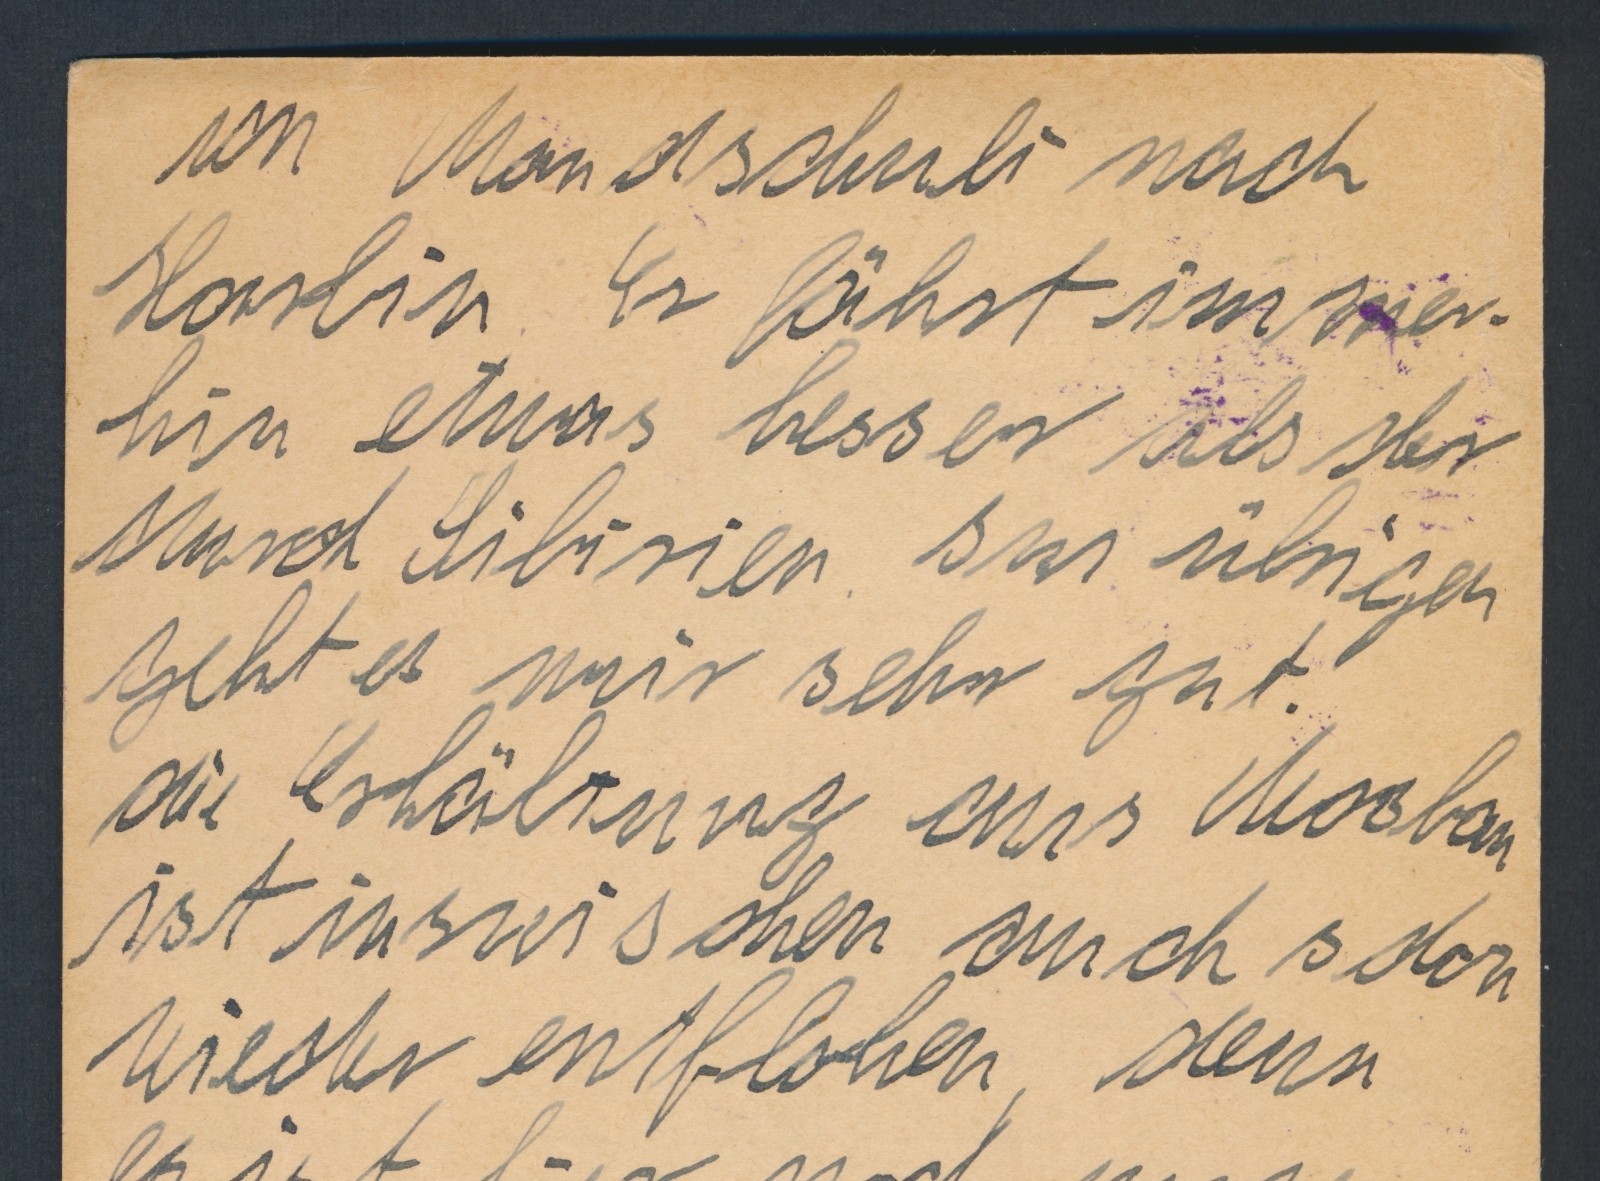 von Mandschuli nach
Harbin. Er fährt immer-
hin etwas besser als der
durch Sibirien. Im übrigen
geht es mir sehr gut.
die Erkältung aus Moskau
ist inzwischen auch schon
wieder entflohen, denn
es ist hier noch